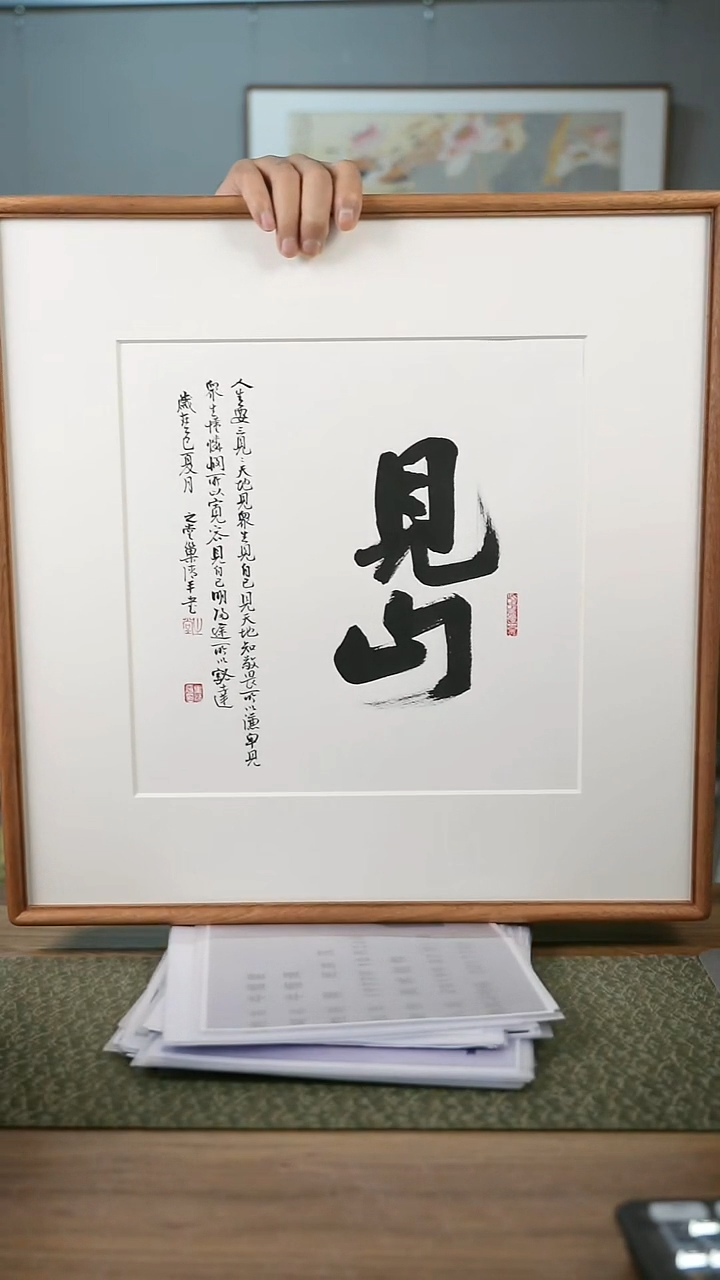 見山
人生要三見〻天地見眾生見自己見天地知敬畏所以謙卑見
眾生懂憐憫所以寬容見自己明歸途所以豁達
歲在乙巳夏月 之堂巢清 書